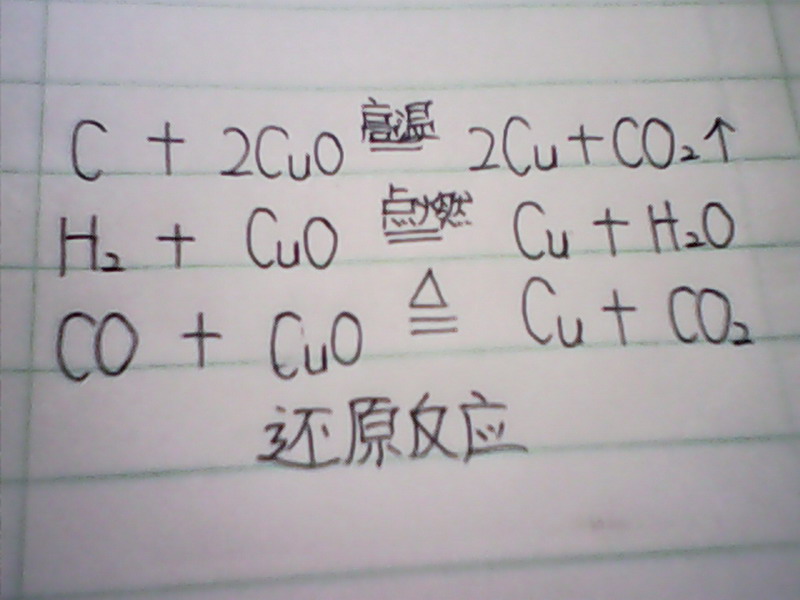 C + 2CuO 高温══ 2Cu+CO₂↑
H₂ + CuO 点燃══ Cu + H₂O
CO + CuO △══ Cu + CO₂
还原反应